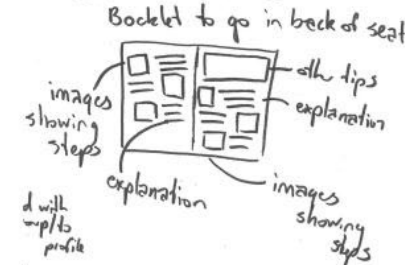 Booklet to go in back of seat
images
showing
steps
oth tips
explanation
explanation
images
showing
steps
d with
up/to
profile